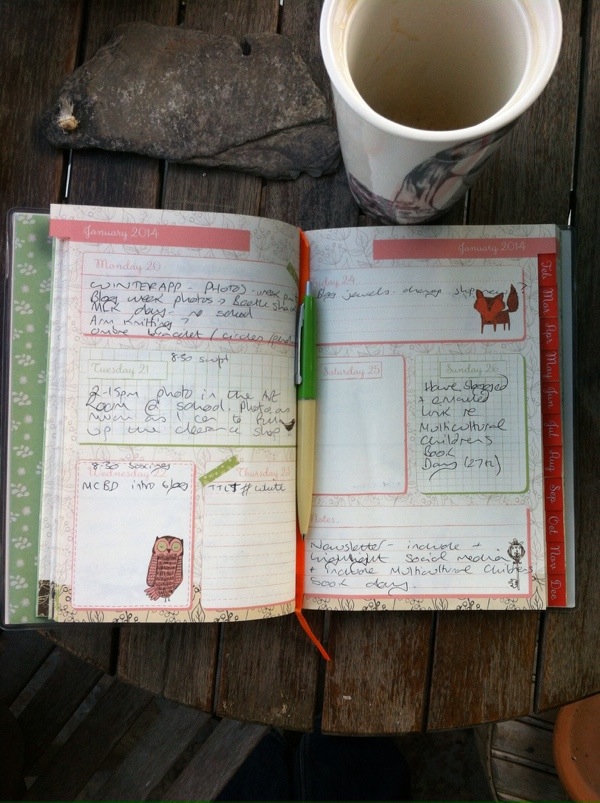 January 2014
Monday 20
WINTERAPP - PHOTOS - week
Blog week photos > Bootle
MCR days - school
Arm knitting?
bracelet / circles
Tuesday 21
8:30 script
2-15pm photo in the Art
Room @ school. Photos as
much as I can to
up the clearance shop
8:30
Wednesday
MCBD intro blog
Thursday 23
January 2014
24
Blog jewels - change
Saturday 25
Sunday 26
Have blogged
+ emailed
link re
Multicultural
Children's
Book
Day (27th)
Notes...
Newsletter - include +
highlight social media
+ include Multicultural Childrens
book day.
Feb
Mar
Apr
May
Jun
Jul
Aug
Sep
Oct
Nov
Dec